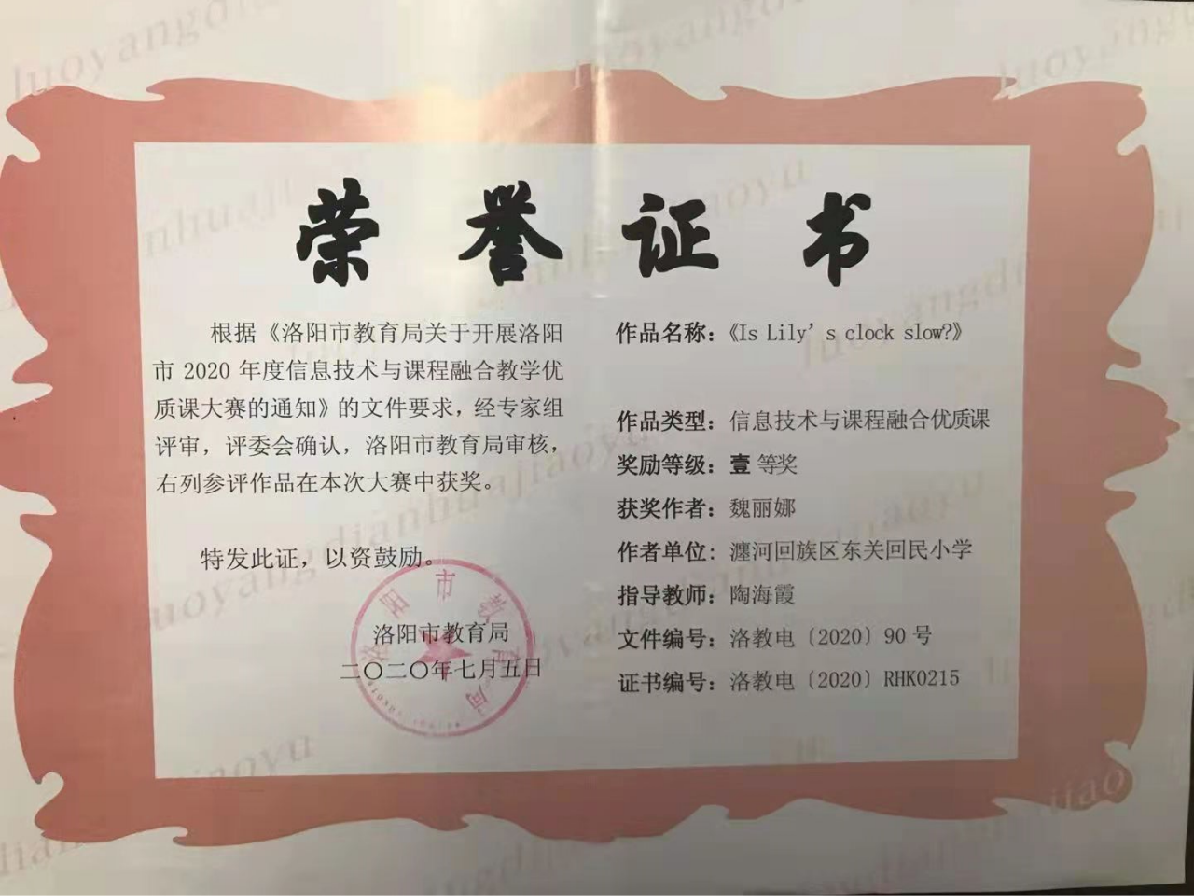 荣誉证书
根据《洛阳市教育局关于开展洛阳
市 2020 年度信息技术与课程融合教学优
质课大赛的通知》的文件要求，经专家组
评审，评委会确认，洛阳市教育局审核，
右列参评作品在本次大赛中获奖。
特发此证，以资鼓励。
洛阳市教育局
二〇二〇年七月五日
作品名称：《Is Lily's clock slow?》
作品类型：信息技术与课程融合优质课
奖励等级：壹等奖
获奖作者：魏丽娜
作者单位：瀍河回族区东关回民小学
指导教师：陶海霞
文件编号：洛教电〔2020〕90 号
证书编号：洛教电〔2020〕RHK0215
洛阳市教育局
luoyangdianhuajiaoyu